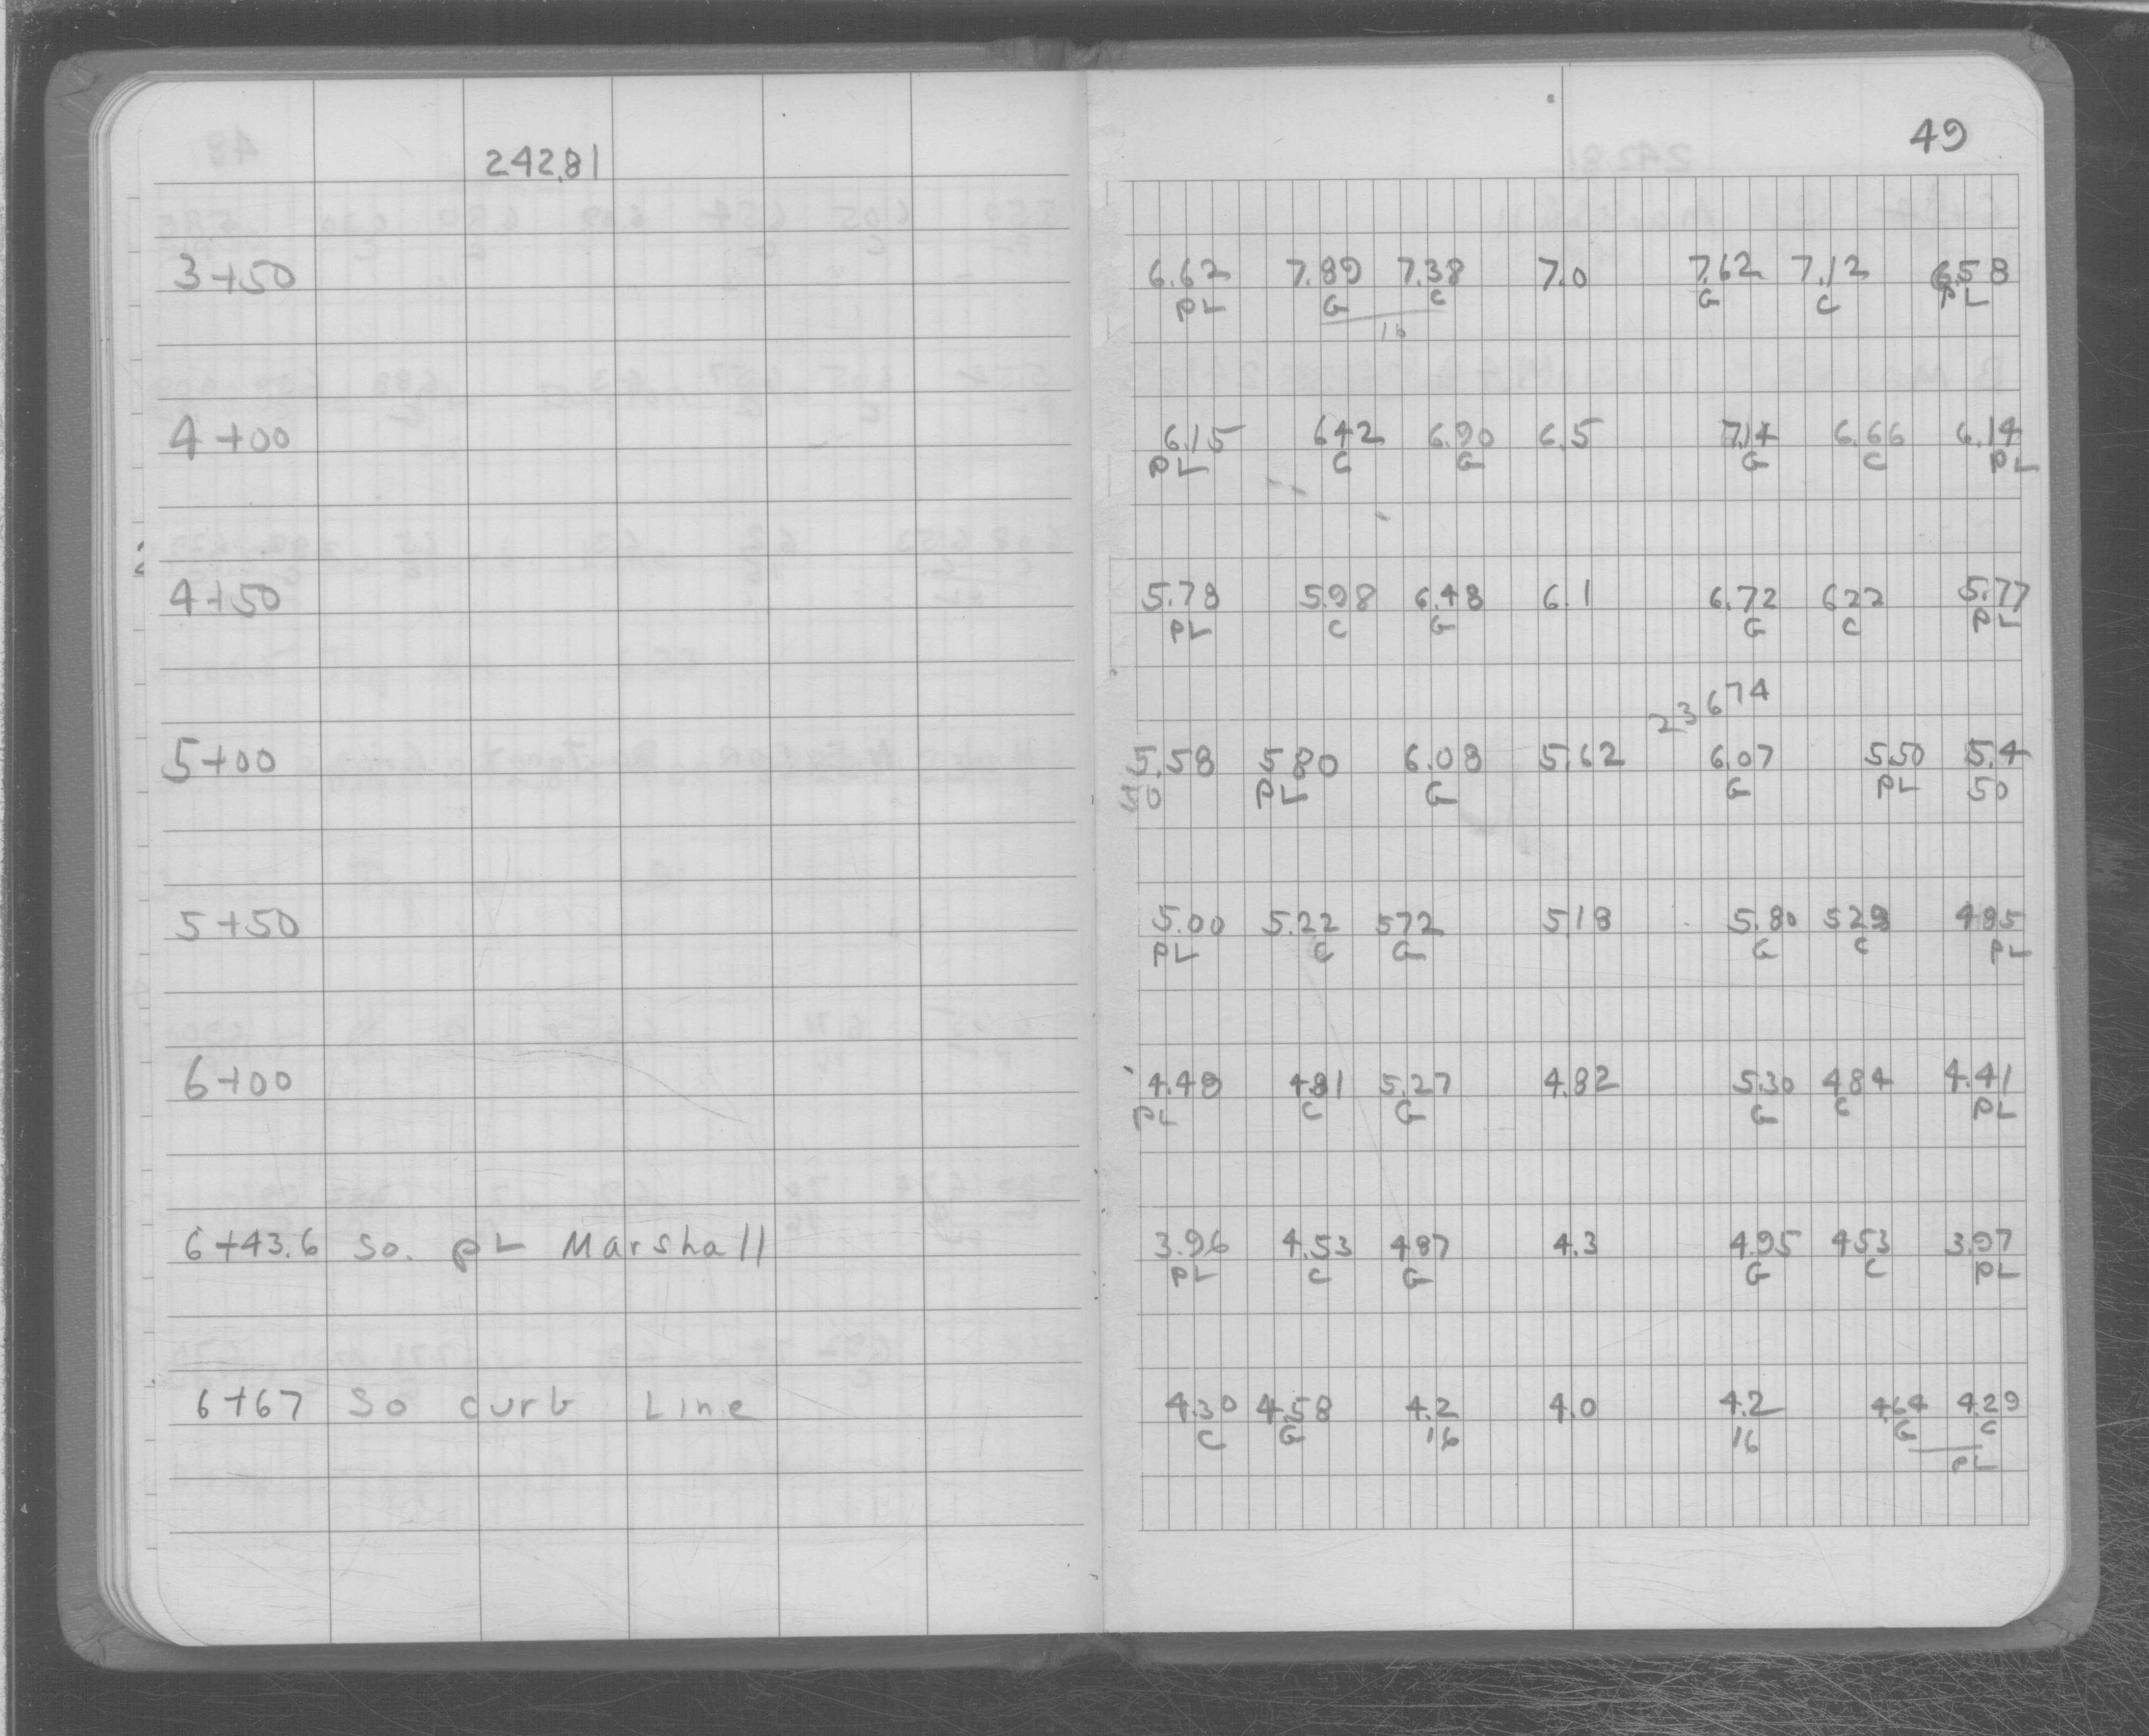 49
242.81
3+50 6.62 7.89 7.38 7.0 7.62 7.12 6.58
PL G C G C PL
16
4+00 6.15 642 6.90 6.5 7.14 6.66 6.14
PL C G G C PL
4+50 5.78 598 6.48 6.1 6.72 622 5.77
PL C G G C PL
236 74
5+00 5.58 580 6.08 5.62 6.07 550 5.4
PL G G PL 50
5+50 5.00 5.22 572 5.18 5.80 529 495
PL C G G C PL
6+00 4.49 481 5.27 4.82 5.30 484 4.41
PL C G G C PL
6+43.6 So. PL Marshall 3.96 4.53 497 4.3 4.95 453 3.97
PL C G G C PL
6+67 So curb Line 4.30 4.58 4.2 4.0 4.2 464 4.29
C G 16 16 G C
PL